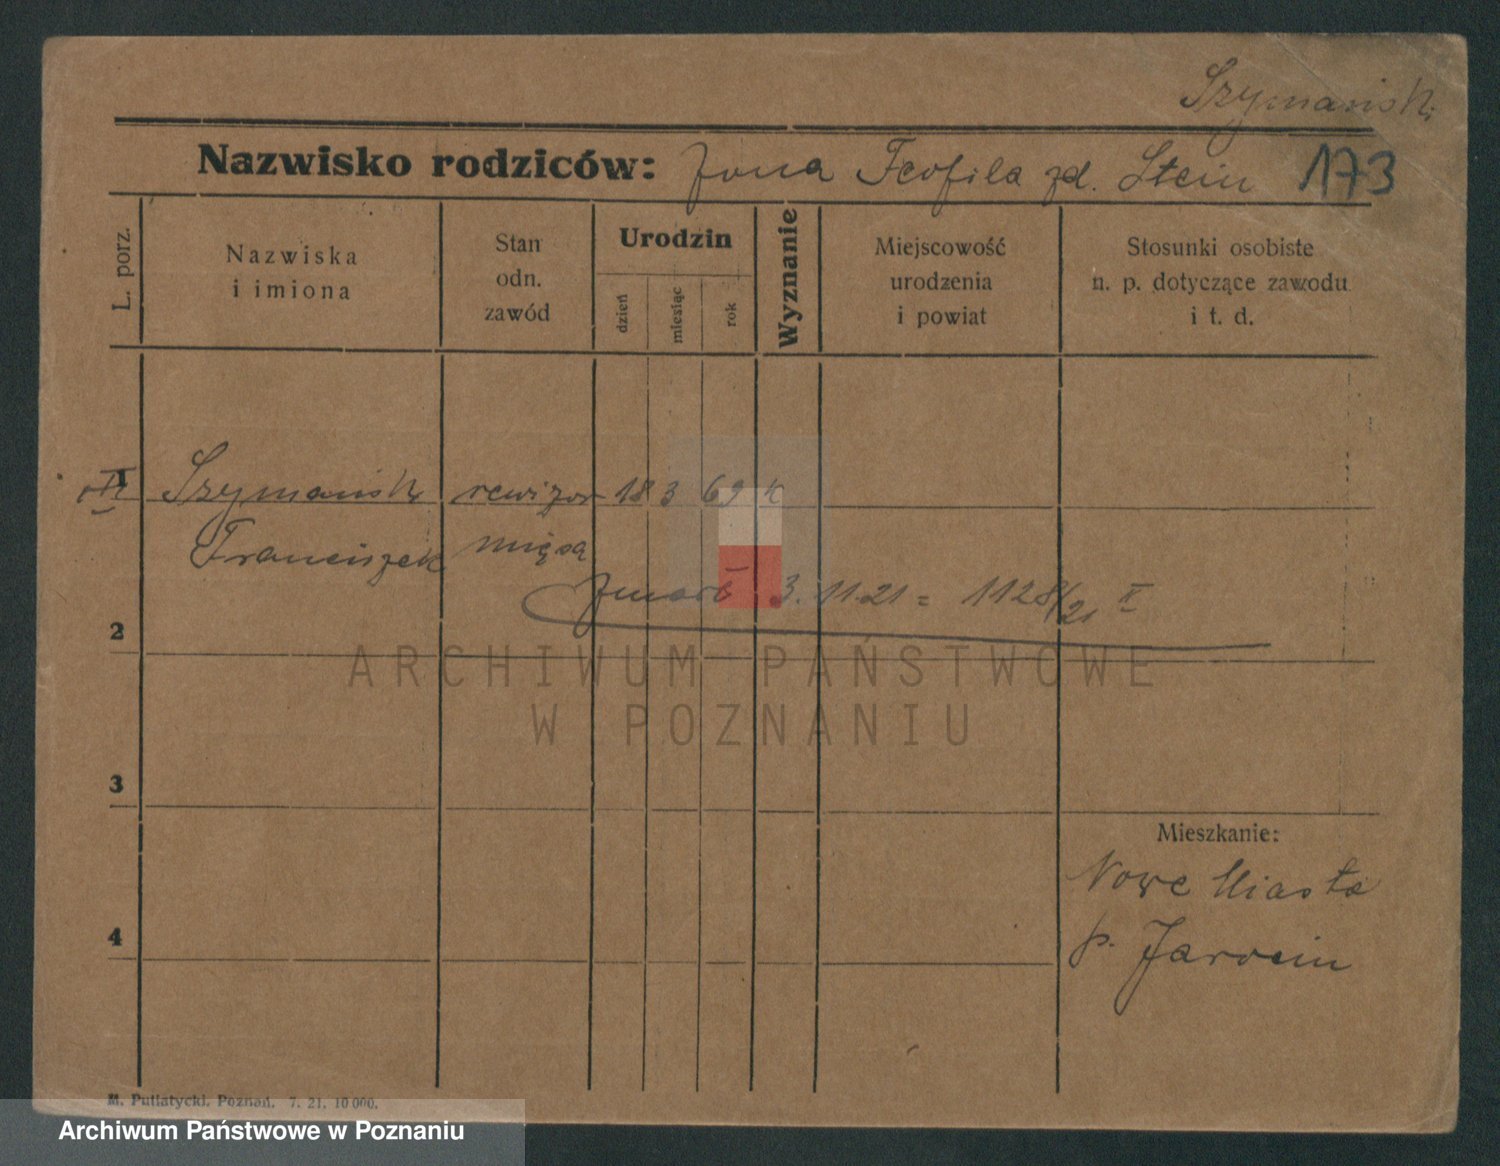 Szymański
Nazwisko rodziców: żona Teofila zd. Stein 173
L. porz.
Nazwiska
i imiona
Stan
odn.
zawód
Urodzin
dzień
miesiąc
rok
Wyznanie
Miejscowość
urodzenia
i powiat
Stosunki osobiste
n. p. dotyczące zawodu
i t. d.
1 Szymański rewizor 18 3 69 k
Franciszek mięsa
zmarł 3.11.21 = 1128/21 II
2
ARCHIWUM PAŃSTWOWE
W POZNANIU
3
Mieszkanie:
Nowe Miasto
4
p. Jarocin
M. Putiatycki. Poznań. 7. 21. 10 000.
Archiwum Państwowe w Poznaniu